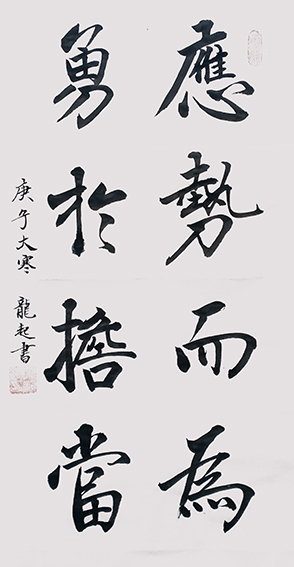 應勢而為
勇於擔當
庚子大寒 龍起書